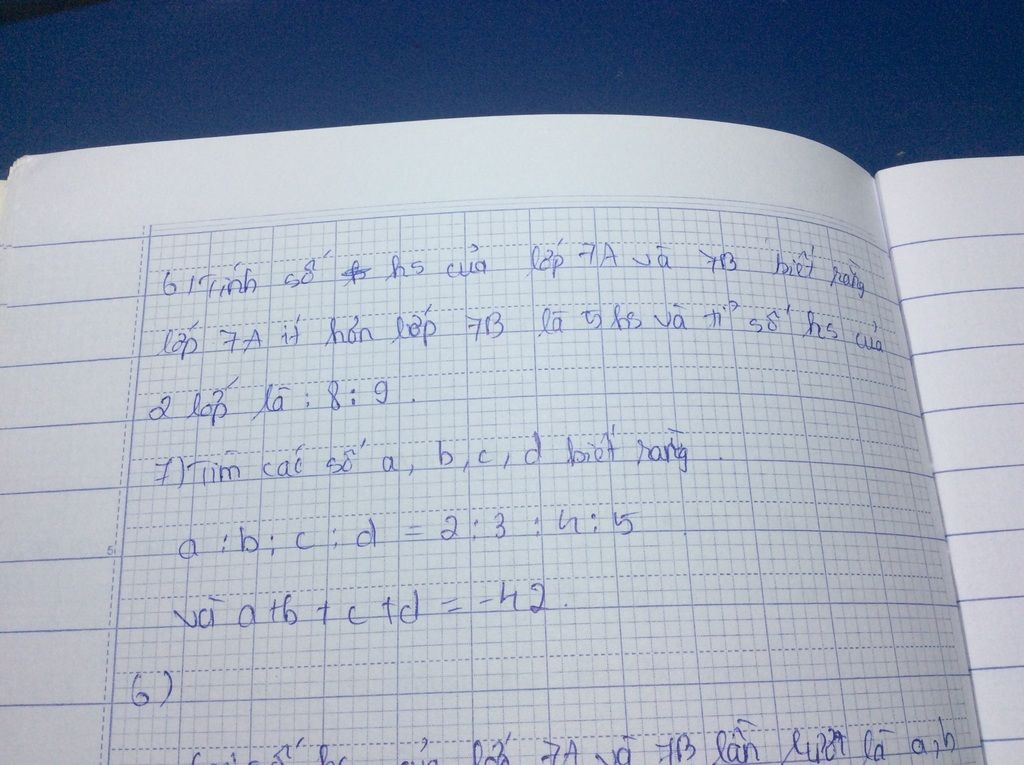 6) Tính số hs của lớp 7A và 7B biết rằng
lớp 7A ít hơn lớp 7B là 5 hs và tỉ số hs của
2 lớp là : 8 : 9.
7) Tìm các số a, b, c, d biết rằng
a : b : c : d = 2 : 3 : 4 : 5
và a+b + c +d = -42.
6)
số hs của lớp 7A và 7B lần lượt là a,b